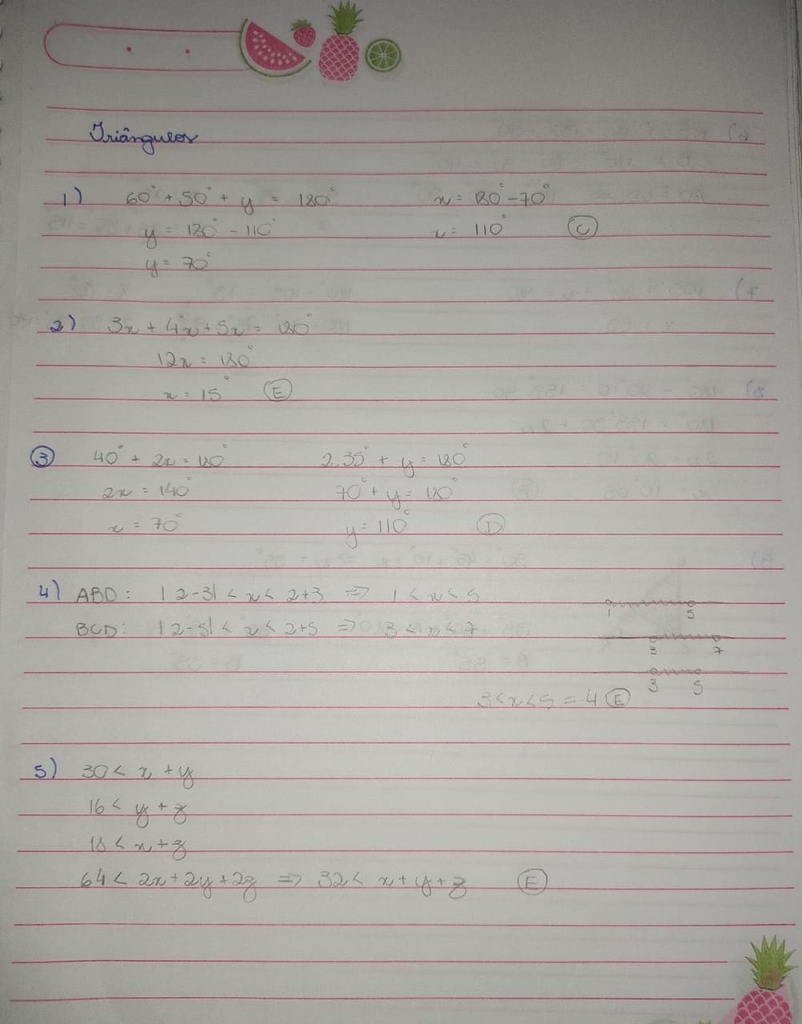 Triângulos
1) 60° + 50° + y = 180° x = 180° - 70°
y = 180° - 110° x = 110° (C)
y = 70°
2) 3x + 4x + 5x = 180°
12x = 180°
x = 15° (E)
3) 40° + 2x = 180° 2.35° + y = 180°
2x = 140° 70° + y = 180°
x = 70° y = 110° (D)
4) ABD: |2-3| < x < 2+3 ⇒ 1 < x < 5
1 5
BCD: |2-5| < x < 2+5 ⇒ 3 < x < 7
3 7
3 5
3 < x < 5 = 4 (E)
5) 30 < x + y
16 < y + z
18 < x + z
64 < 2x + 2y + 2z ⇒ 32 < x + y + z (E)